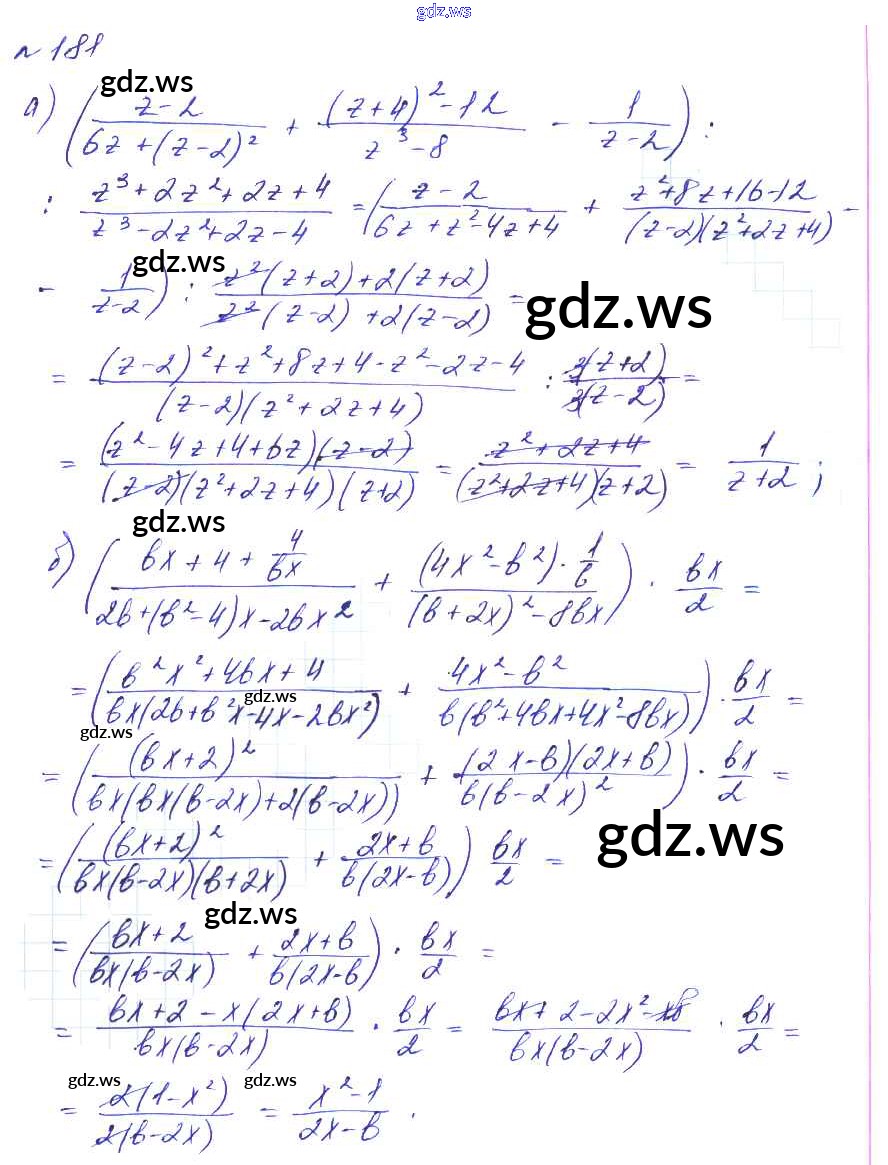 gdz.ws
№ 181
gdz.ws
а) ( (z-2)/(6z+(z-2)²) + ((z+4)²-12)/(z³-8) - 1/(z-2) ) :
: (z³+2z²+2z+4)/(z³-2z²+2z-4) = ( (z-2)/(6z+z²-4z+4) + (z²+8z+16-12)/((z-2)(z²+2z+4)) -
gdz.ws
- 1/(z-2) ) : (z²(z+2)+2(z+2))/(z²(z-2)+2(z-2)) =
gdz.ws
= ((z-2)²+z²+8z+4-z²-2z-4)/((z-2)(z²+2z+4)) : (z+2)/(z-2) =
= ((z²-4z+4+6z)(z-2))/((z-2)(z²+2z+4)(z+2)) = (z²+2z+4)/((z²+2z+4)(z+2)) = 1/(z+2) ;
gdz.ws
б) ( (вx+4+4/вx)/(2в+(в²-4)x-2вx²) + ((4x²-в²)·1/в)/((в+2x)²-8вx) ) · вx/2 =
= ( (в²x²+4вx+4)/(вx(2в+в²x-4x-2вx²)) + (4x²-в²)/(в(в²+4вx+4x²-8вx)) ) · вx/2 =
gdz.ws
gdz.ws
= ( (вx+2)²/(вx(вx(в-2x)+2(в-2x))) + ((2x-в)(2x+в))/(в(в-2x)²) ) · вx/2 =
gdz.ws
= ( (вx+2)²/(вx(в-2x)(в+2x)) + (2x+в)/(в(2x-в)) ) вx/2 =
gdz.ws
= ( (вx+2)/(вx(в-2x)) + (2x+в)/(в(2x-в)) ) · вx/2 =
= (вx+2-x(2x+в))/(вx(в-2x)) · вx/2 = (вx+2-2x²-xв)/(вx(в-2x)) · вx/2 =
gdz.ws
gdz.ws
= (2(1-x²))/(2(в-2x)) = (x²-1)/(2x-в) .